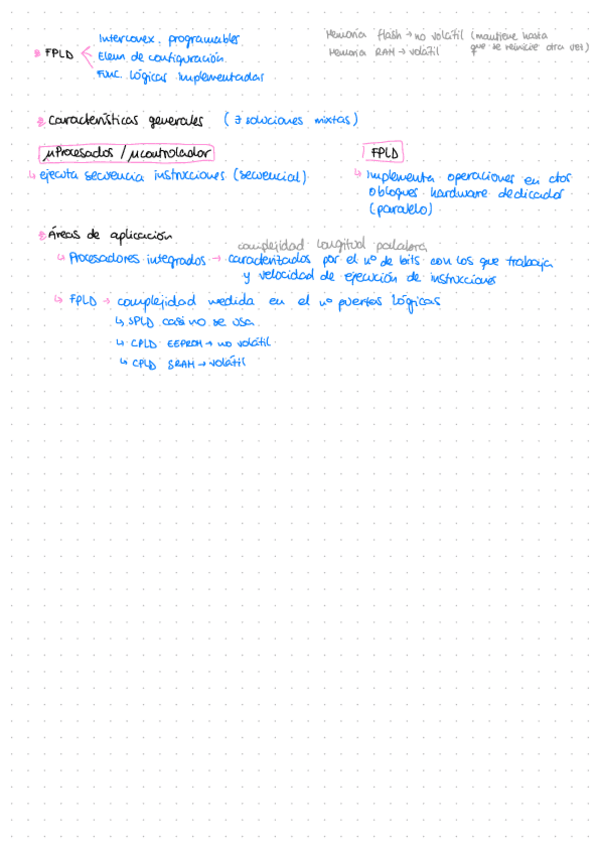 Interconex. programables
FPLD
Elem de configuración
Func. lógicas implementadas
Memoria flash → no volátil (mantiene hasta
que se reinicie otra vez)
Memoria RAM → volátil
Características generales (∃ soluciones mixtas)
μProcesados / μcontrolador
FPLD
↳ ejecuta secuencia instrucciones (secuencial)
↳ Implementa operaciones en ctos
o bloques hardware dedicados
(paralelo)
Áreas de aplicación
complejidad longitud palabra
↳ Procesadores integrados → caracterizados por el nº de bits con los que trabaja
y velocidad de ejecución de instrucciones
↳ FPLD → complejidad medida en el nº puertas lógicas
↳ SPLD casi no se usa
↳ CPLD EEPROM → no volátil
↳ CPLD SRAM → volátil